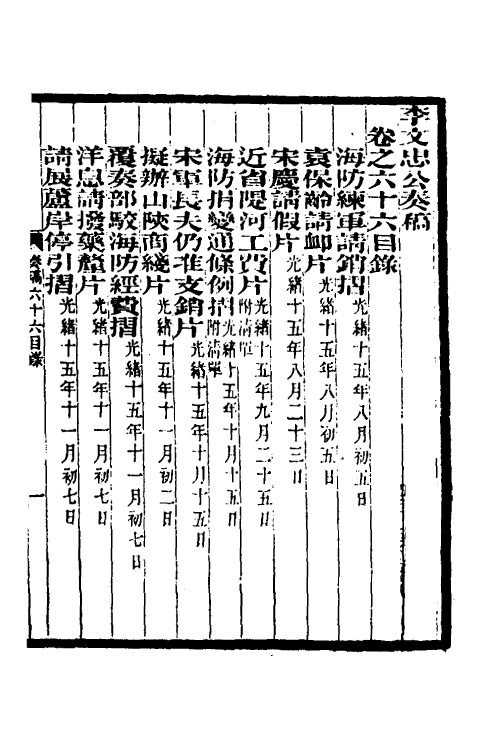 李文忠公奏稿
卷之六十六目錄
海防練軍請銷摺 光緒十五年八月初五日
袁保齡請卹片 光緒十五年八月初五日
宋慶請假片 光緒十五年八月二十三日
近省隄河工費片 光緒十五年九月二十五日 附清單
海防捐變通條例摺 光緒十五年十月十五日 附清單
宋軍長夫仍准支銷片 光緒十五年十月十五日
擬辦山陝商綫片 光緒十五年十一月初二日
覆奏部駮海防經費摺 光緒十五年十一月初七日
洋息請撥藥釐片 光緒十五年十一月初七日
請展蘆岸停引摺 光緒十五年十一月初七日
奏稿六十六目錄
一